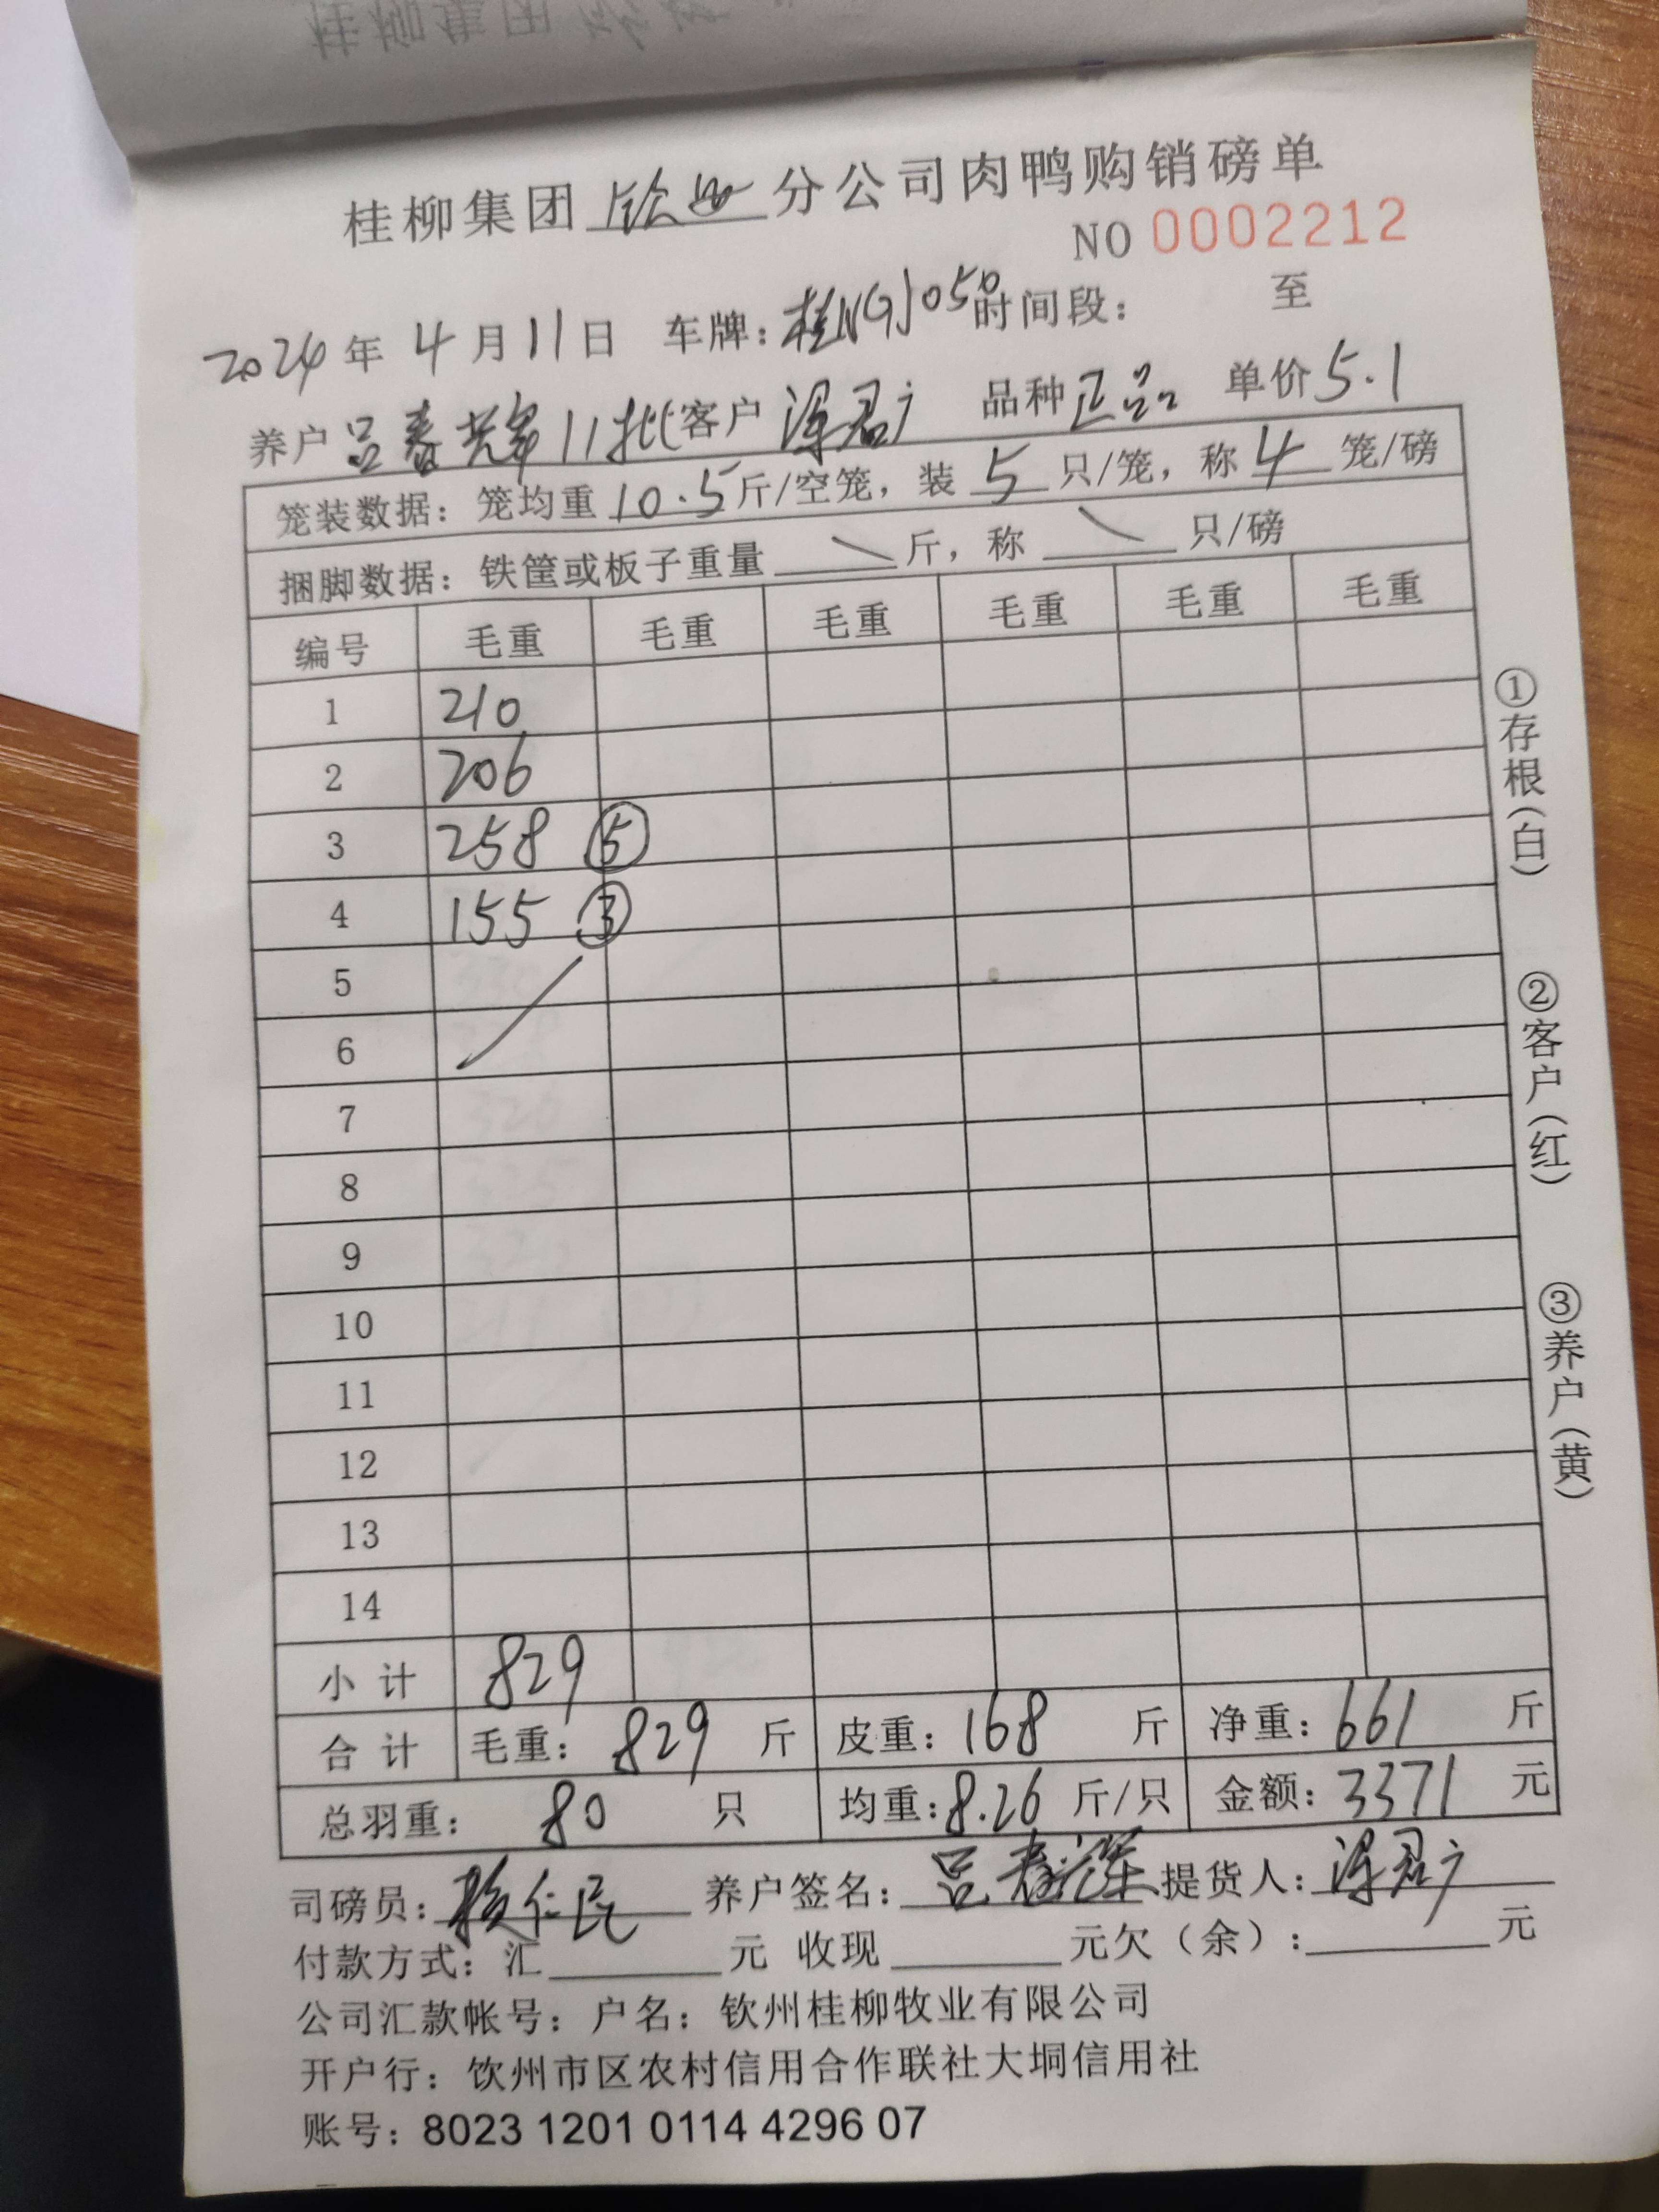 桂柳集团 钦州 分公司肉鸭购销磅单
NO 0002212
2024 年 4 月 11 日 车牌： 时间段： 至
养户 吕春 11批 客户 品种 正品 单价 5.1
笼装数据：笼均重 10.5 斤/空笼，装 5 只/笼，称 4 笼/磅
捆脚数据：铁筐或板子重量 \ 斤，称 \ 只/磅
编号 毛重 毛重 毛重 毛重 毛重 毛重
1 210
2 206
3 258 ⑤
4 155 ③
5
6
7
8
9
10
11
12
13
14
小计 829
合计 毛重：829 斤 皮重：168 斤 净重：661 斤
总羽重：80 只 均重：8.26 斤/只 金额：3371 元
司磅员： 仁民 养户签名：吕春 提货人：
付款方式：汇 元 收现 元欠（余）： 元
公司汇款帐号：户名：钦州桂柳牧业有限公司
开户行：饮州市区农村信用合作联社大垌信用社
账号：8023 1201 0114 4296 07
①存根（白）
②客户（红）
③养户（黄）